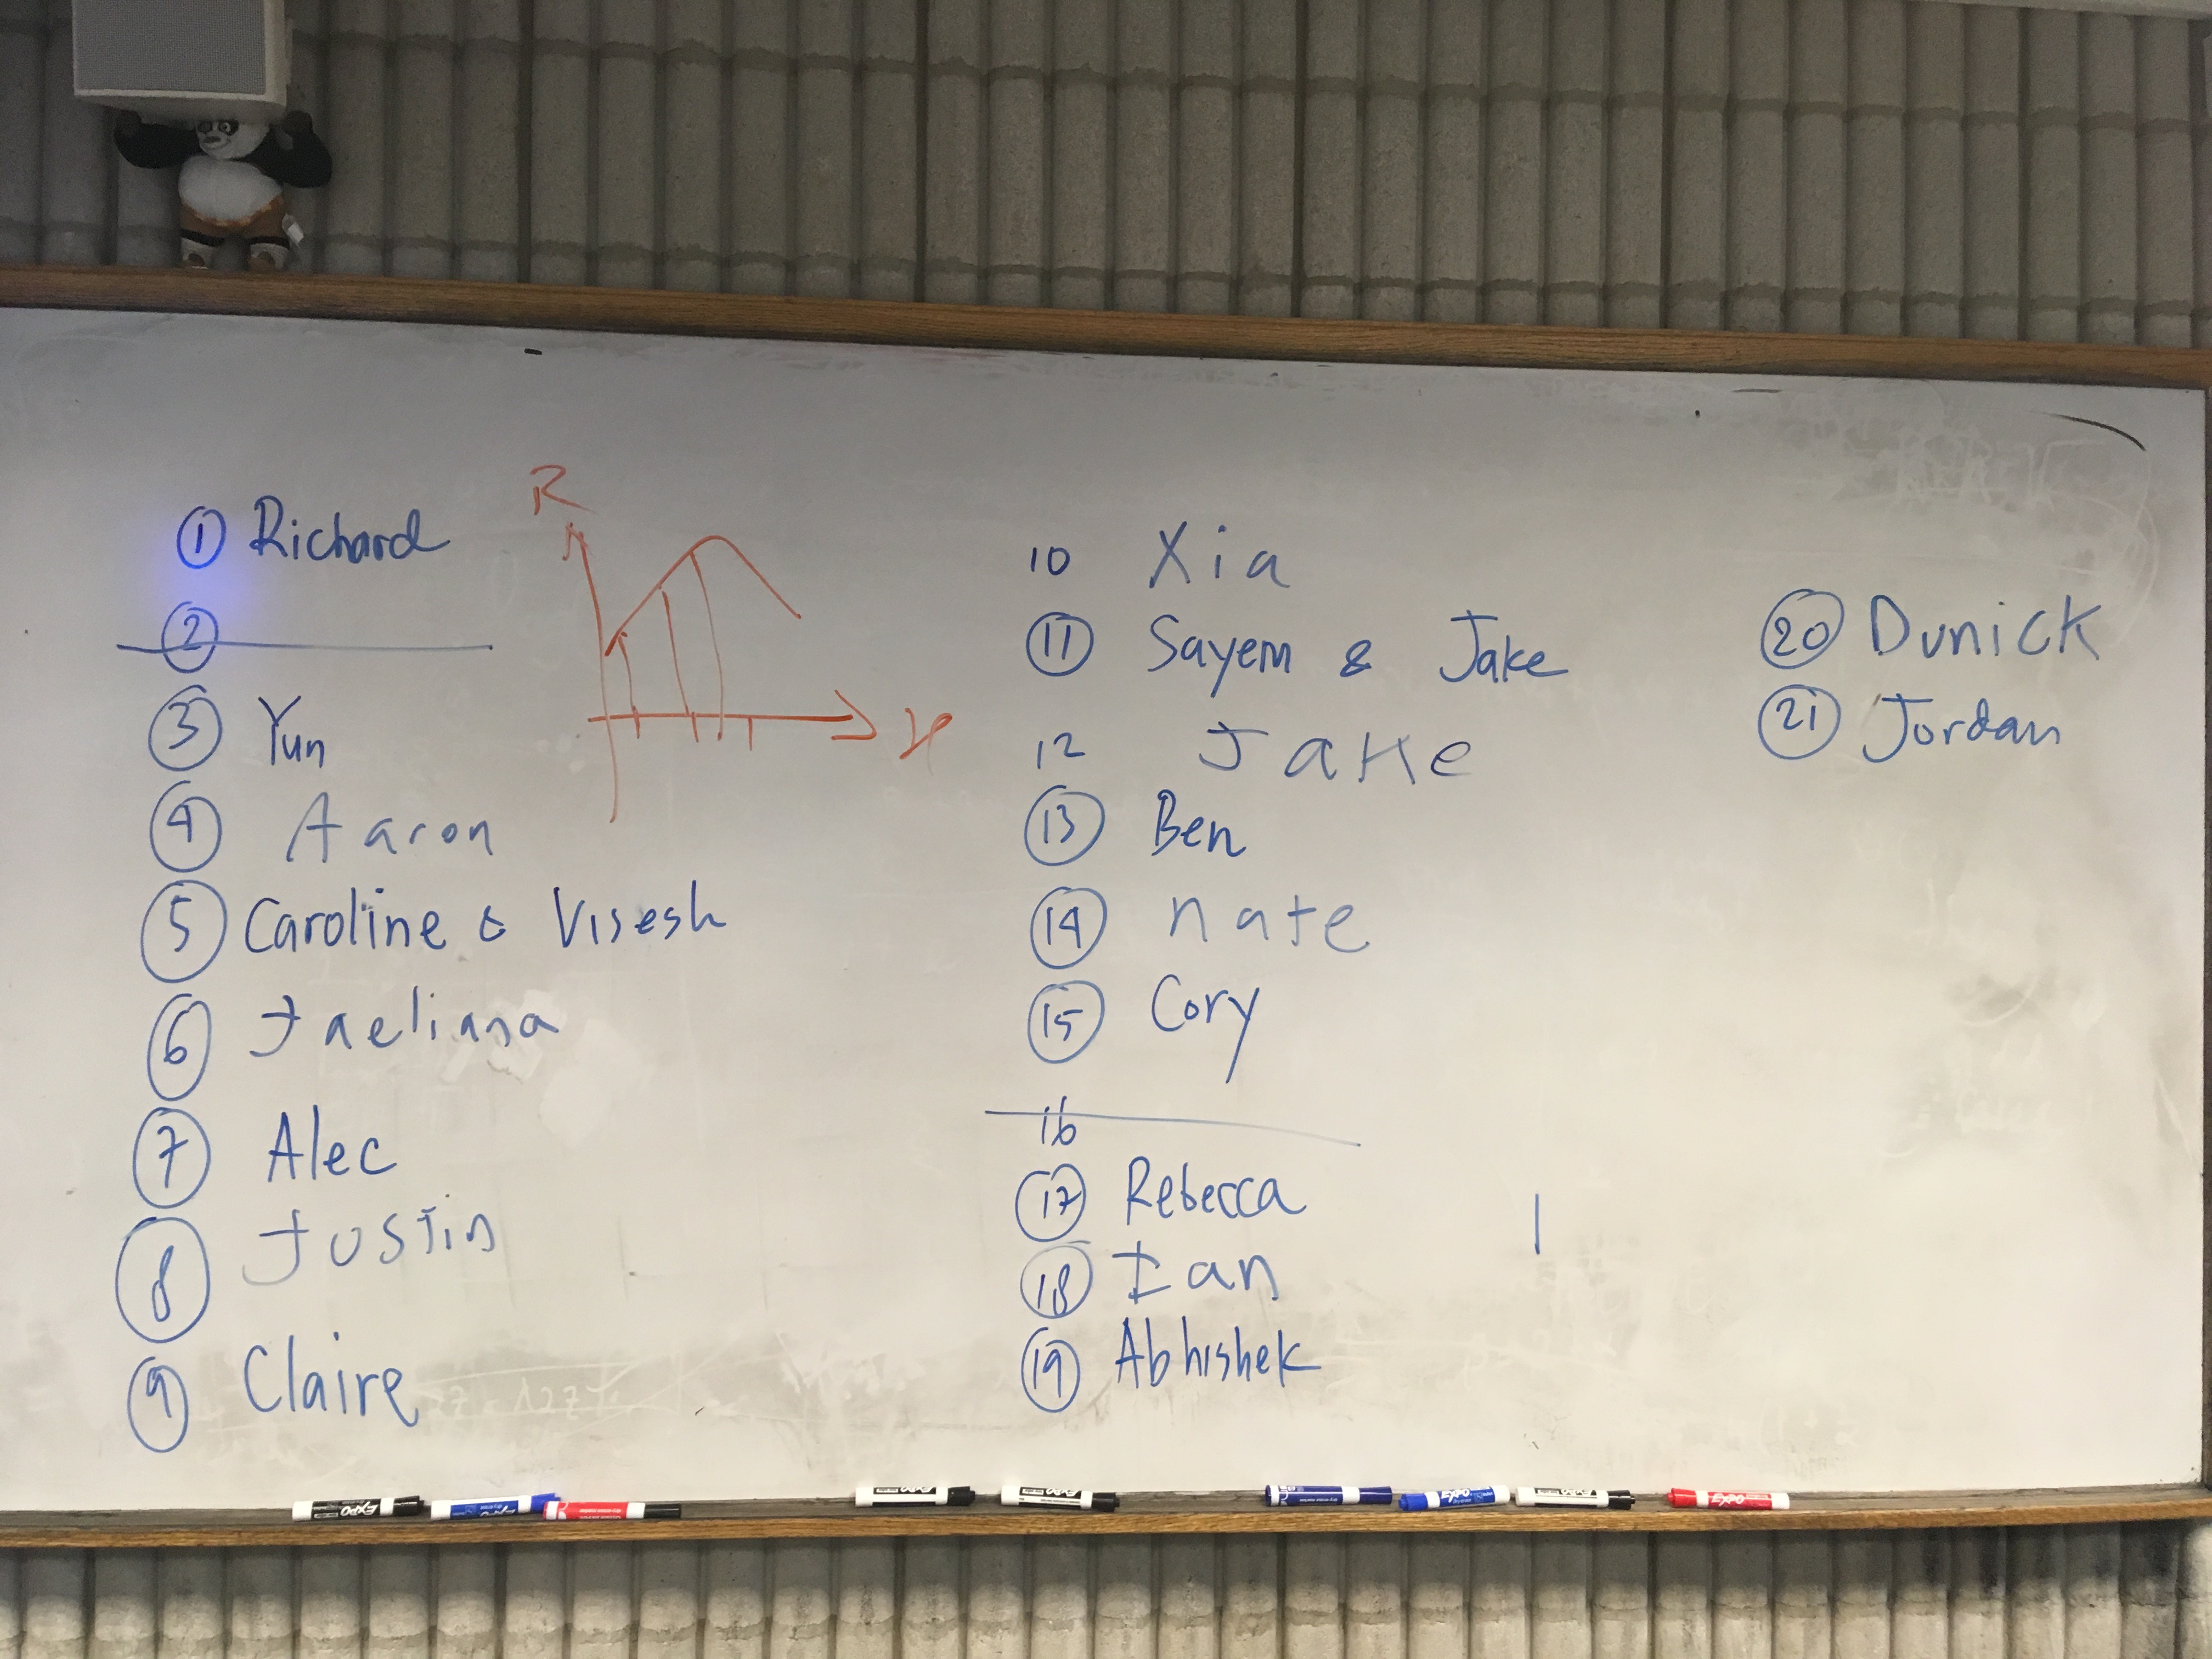 ① Richard
②
③ Yun
④ Aaron
⑤ Caroline & Visesh
⑥ Jaeliana
⑦ Alec
⑧ Justin
⑨ Claire
R
x
10 Xia
⑪ Sayem & Jake
12 Jake
⑬ Ben
⑭ nate
⑮ Cory
16
⑰ Rebecca
⑱ Ian
⑲ Abhishek
⑳ Dunick
㉑ Jordan
EXPO
EXPO
EXPO
EXPO